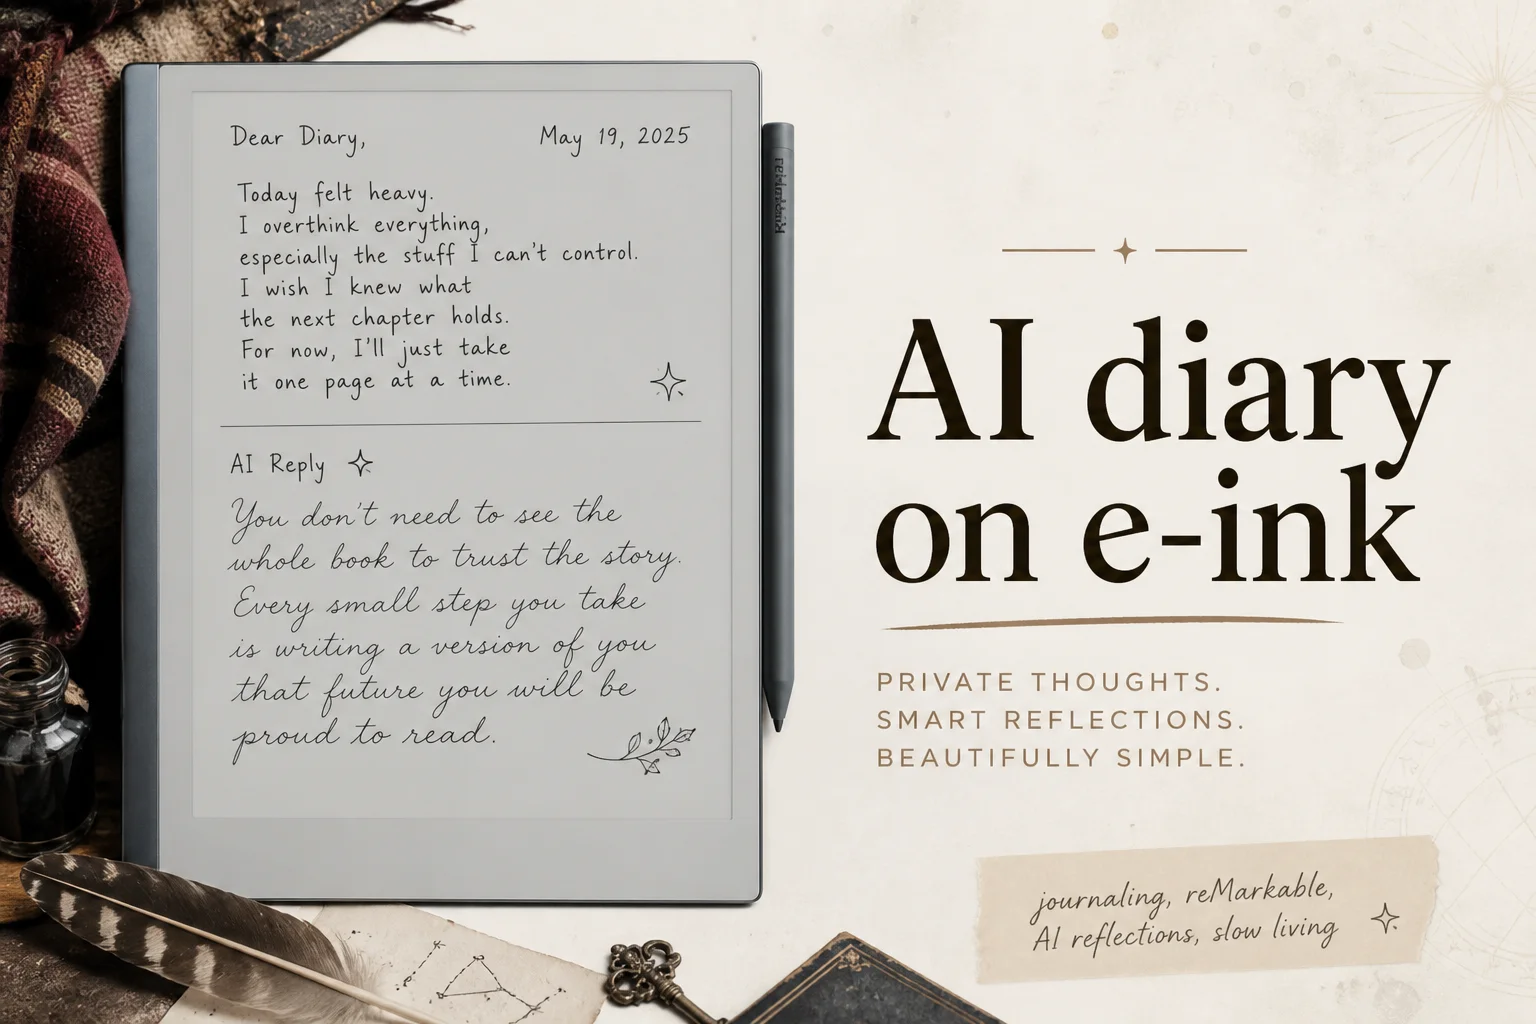 Dear Diary,
May 19, 2025
Today felt heavy.
I overthink everything,
especially the stuff I can't control.
I wish I knew what
the next chapter holds.
For now, I'll just take
it one page at a time.
AI Reply
You don't need to see the
whole book to trust the story.
Every small step you take
is writing a version of you
that future you will be
proud to read.
AI diary
on e-ink
PRIVATE THOUGHTS.
SMART REFLECTIONS.
BEAUTIFULLY SIMPLE.
journaling, reMarkable,
AI reflections, slow living